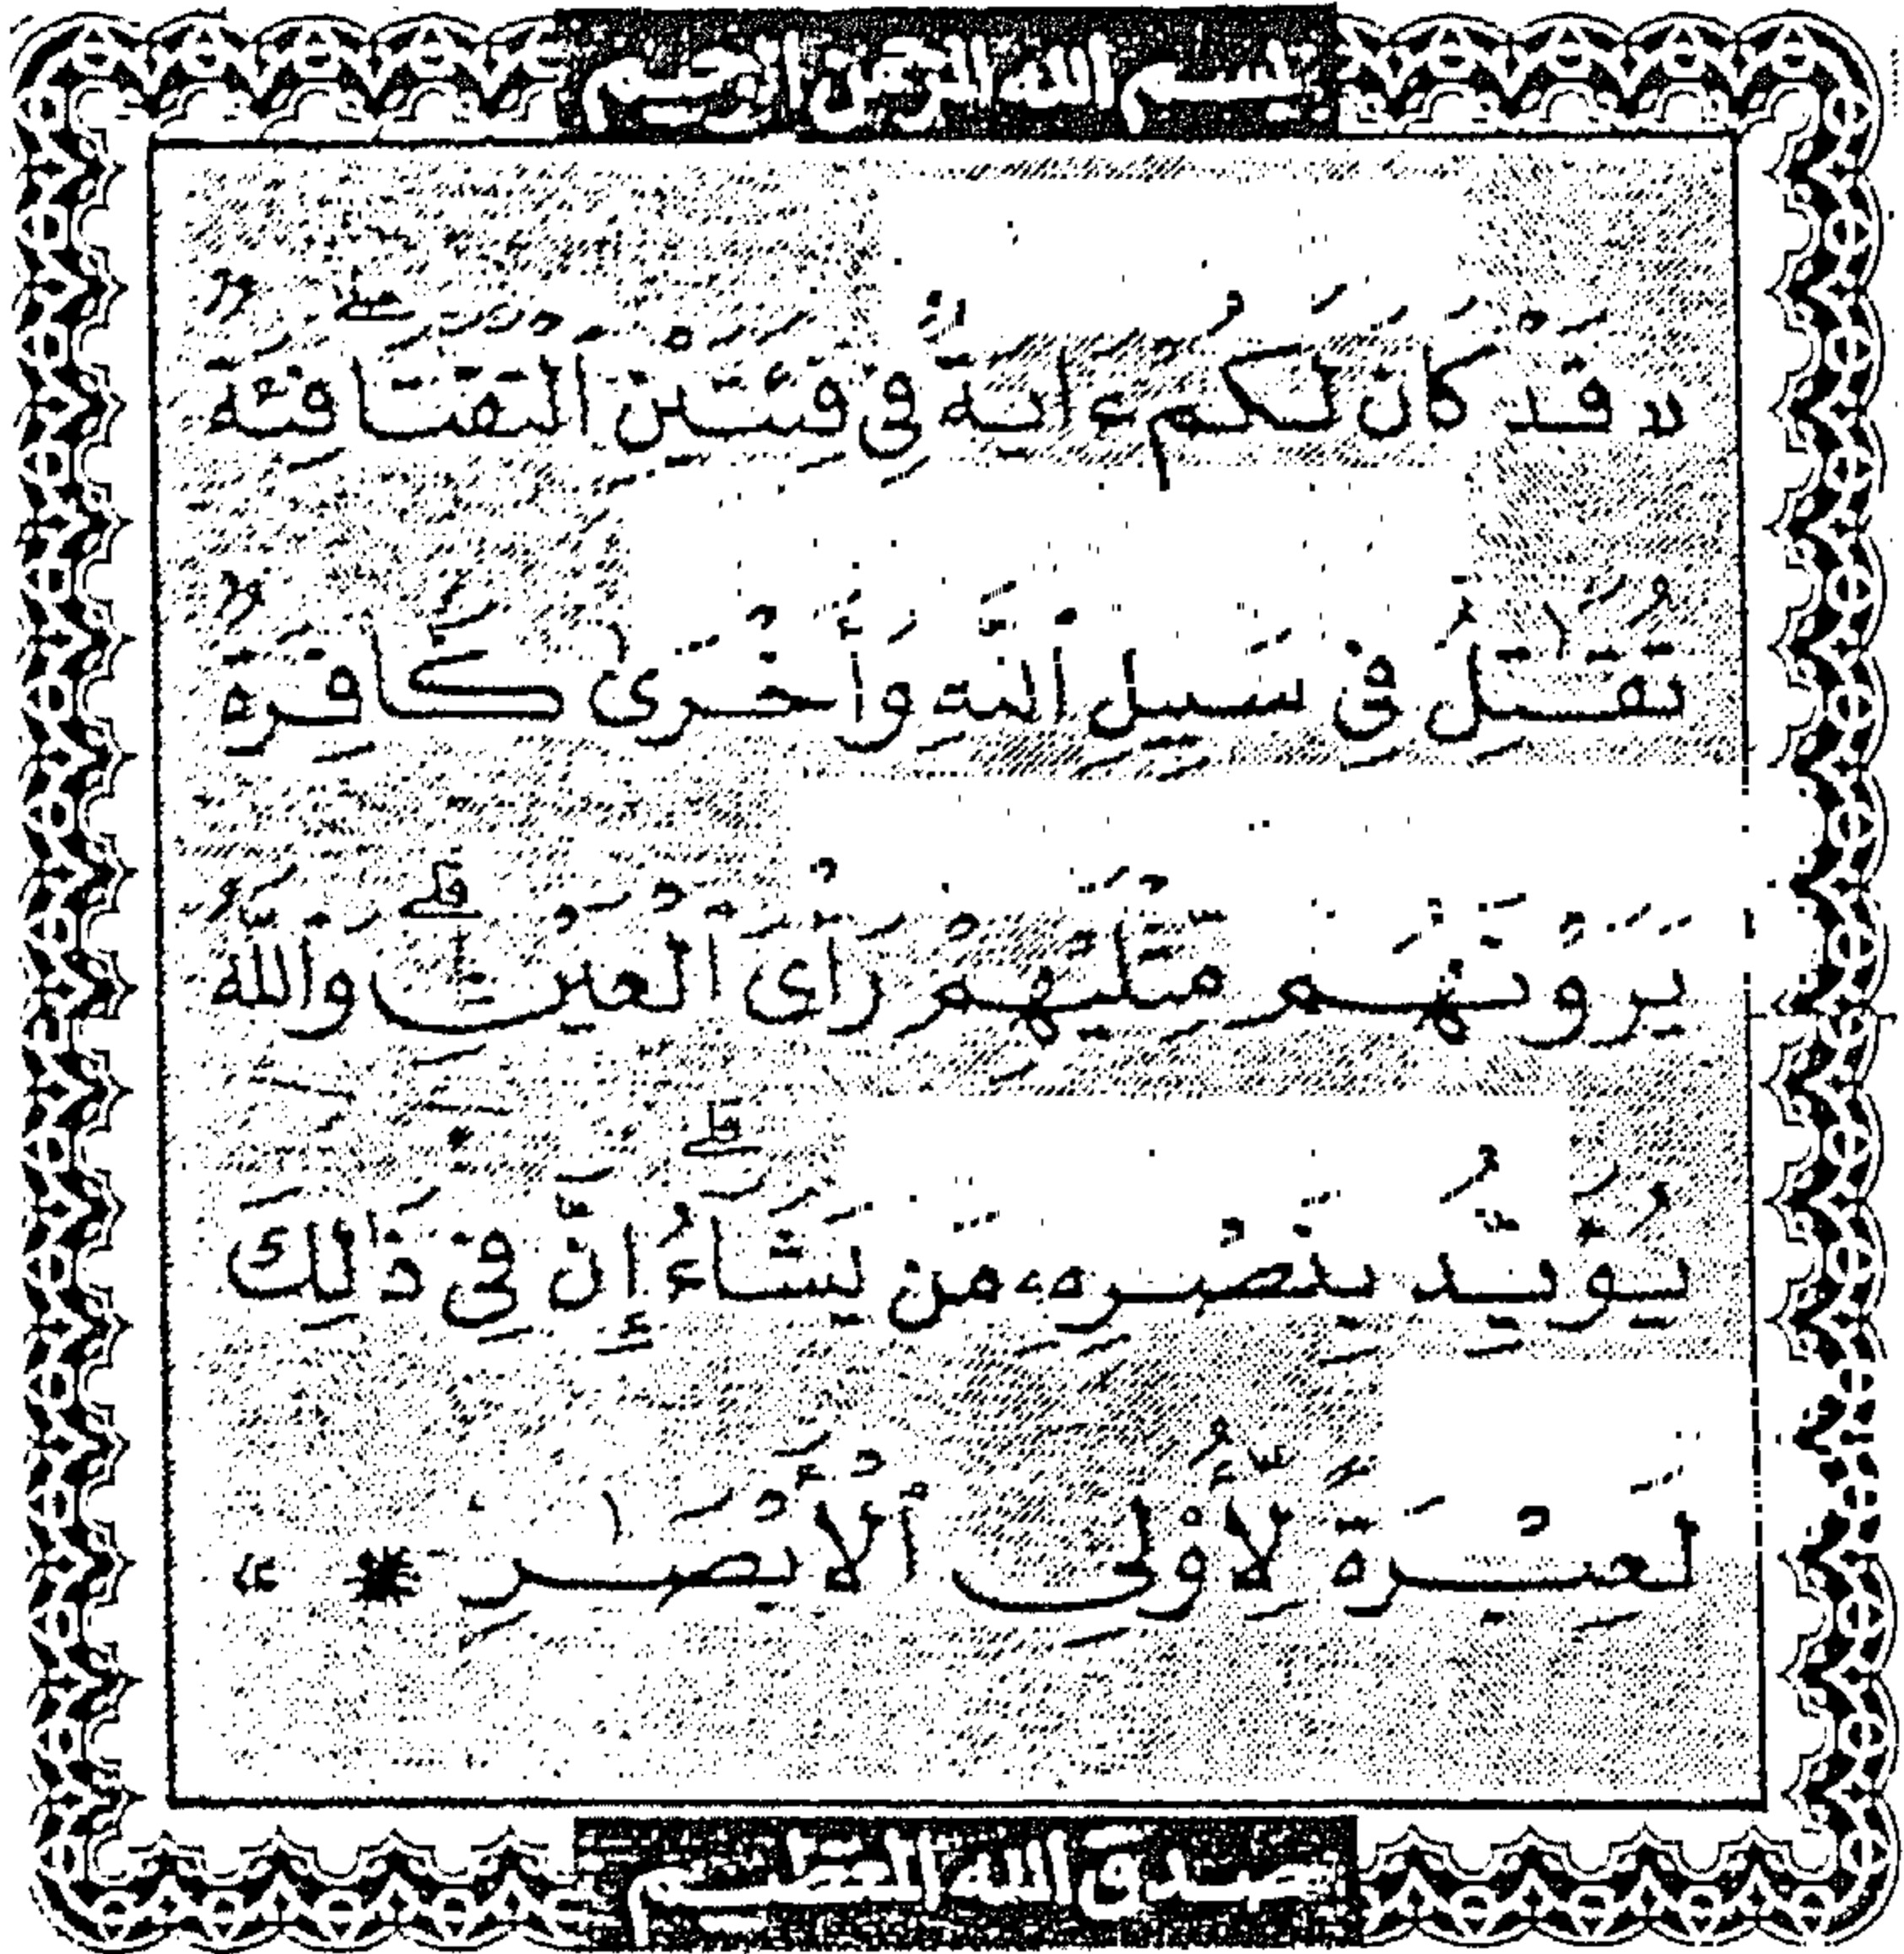 بسم الله الرحمن الرحيم
« قَدْ كَانَ لَكُمْ ءَايَةٌ فِي فِئَتَيْنِ ٱلْتَقَتَا فِئَةٌ
تُقَٰتِلُ فِي سَبِيلِ ٱللَّهِ وَأُخْرَىٰ كَافِرَةٌ
يَرَوْنَهُم مِّثْلَيْهِمْ رَأْيَ ٱلْعَيْنِ وَٱللَّهُ
يُؤَيِّدُ بِنَصْرِهِۦ مَن يَشَآءُ إِنَّ فِي ذَٰلِكَ
لَعِبْرَةً لِّأُوْلِي ٱلْأَبْصَٰرِ * »
صدق الله العظيم